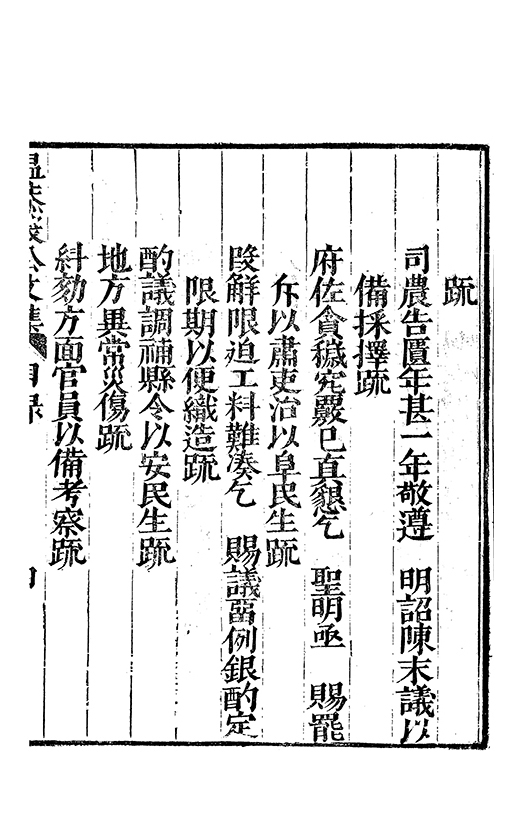 疏
司農告匱年甚一年敬遵　明詔陳末議以
備採擇疏
府佐貪穢究覈已直懇乞　聖明亟　賜罷
斥以肅吏治以阜民生疏
叚解限迫工料難湊乞　賜議畱例銀酌定
限期以便織造疏
酌議調補縣令以安民生疏
地方異常災傷疏
糾劾方面官員以備考察疏
公文集　目录